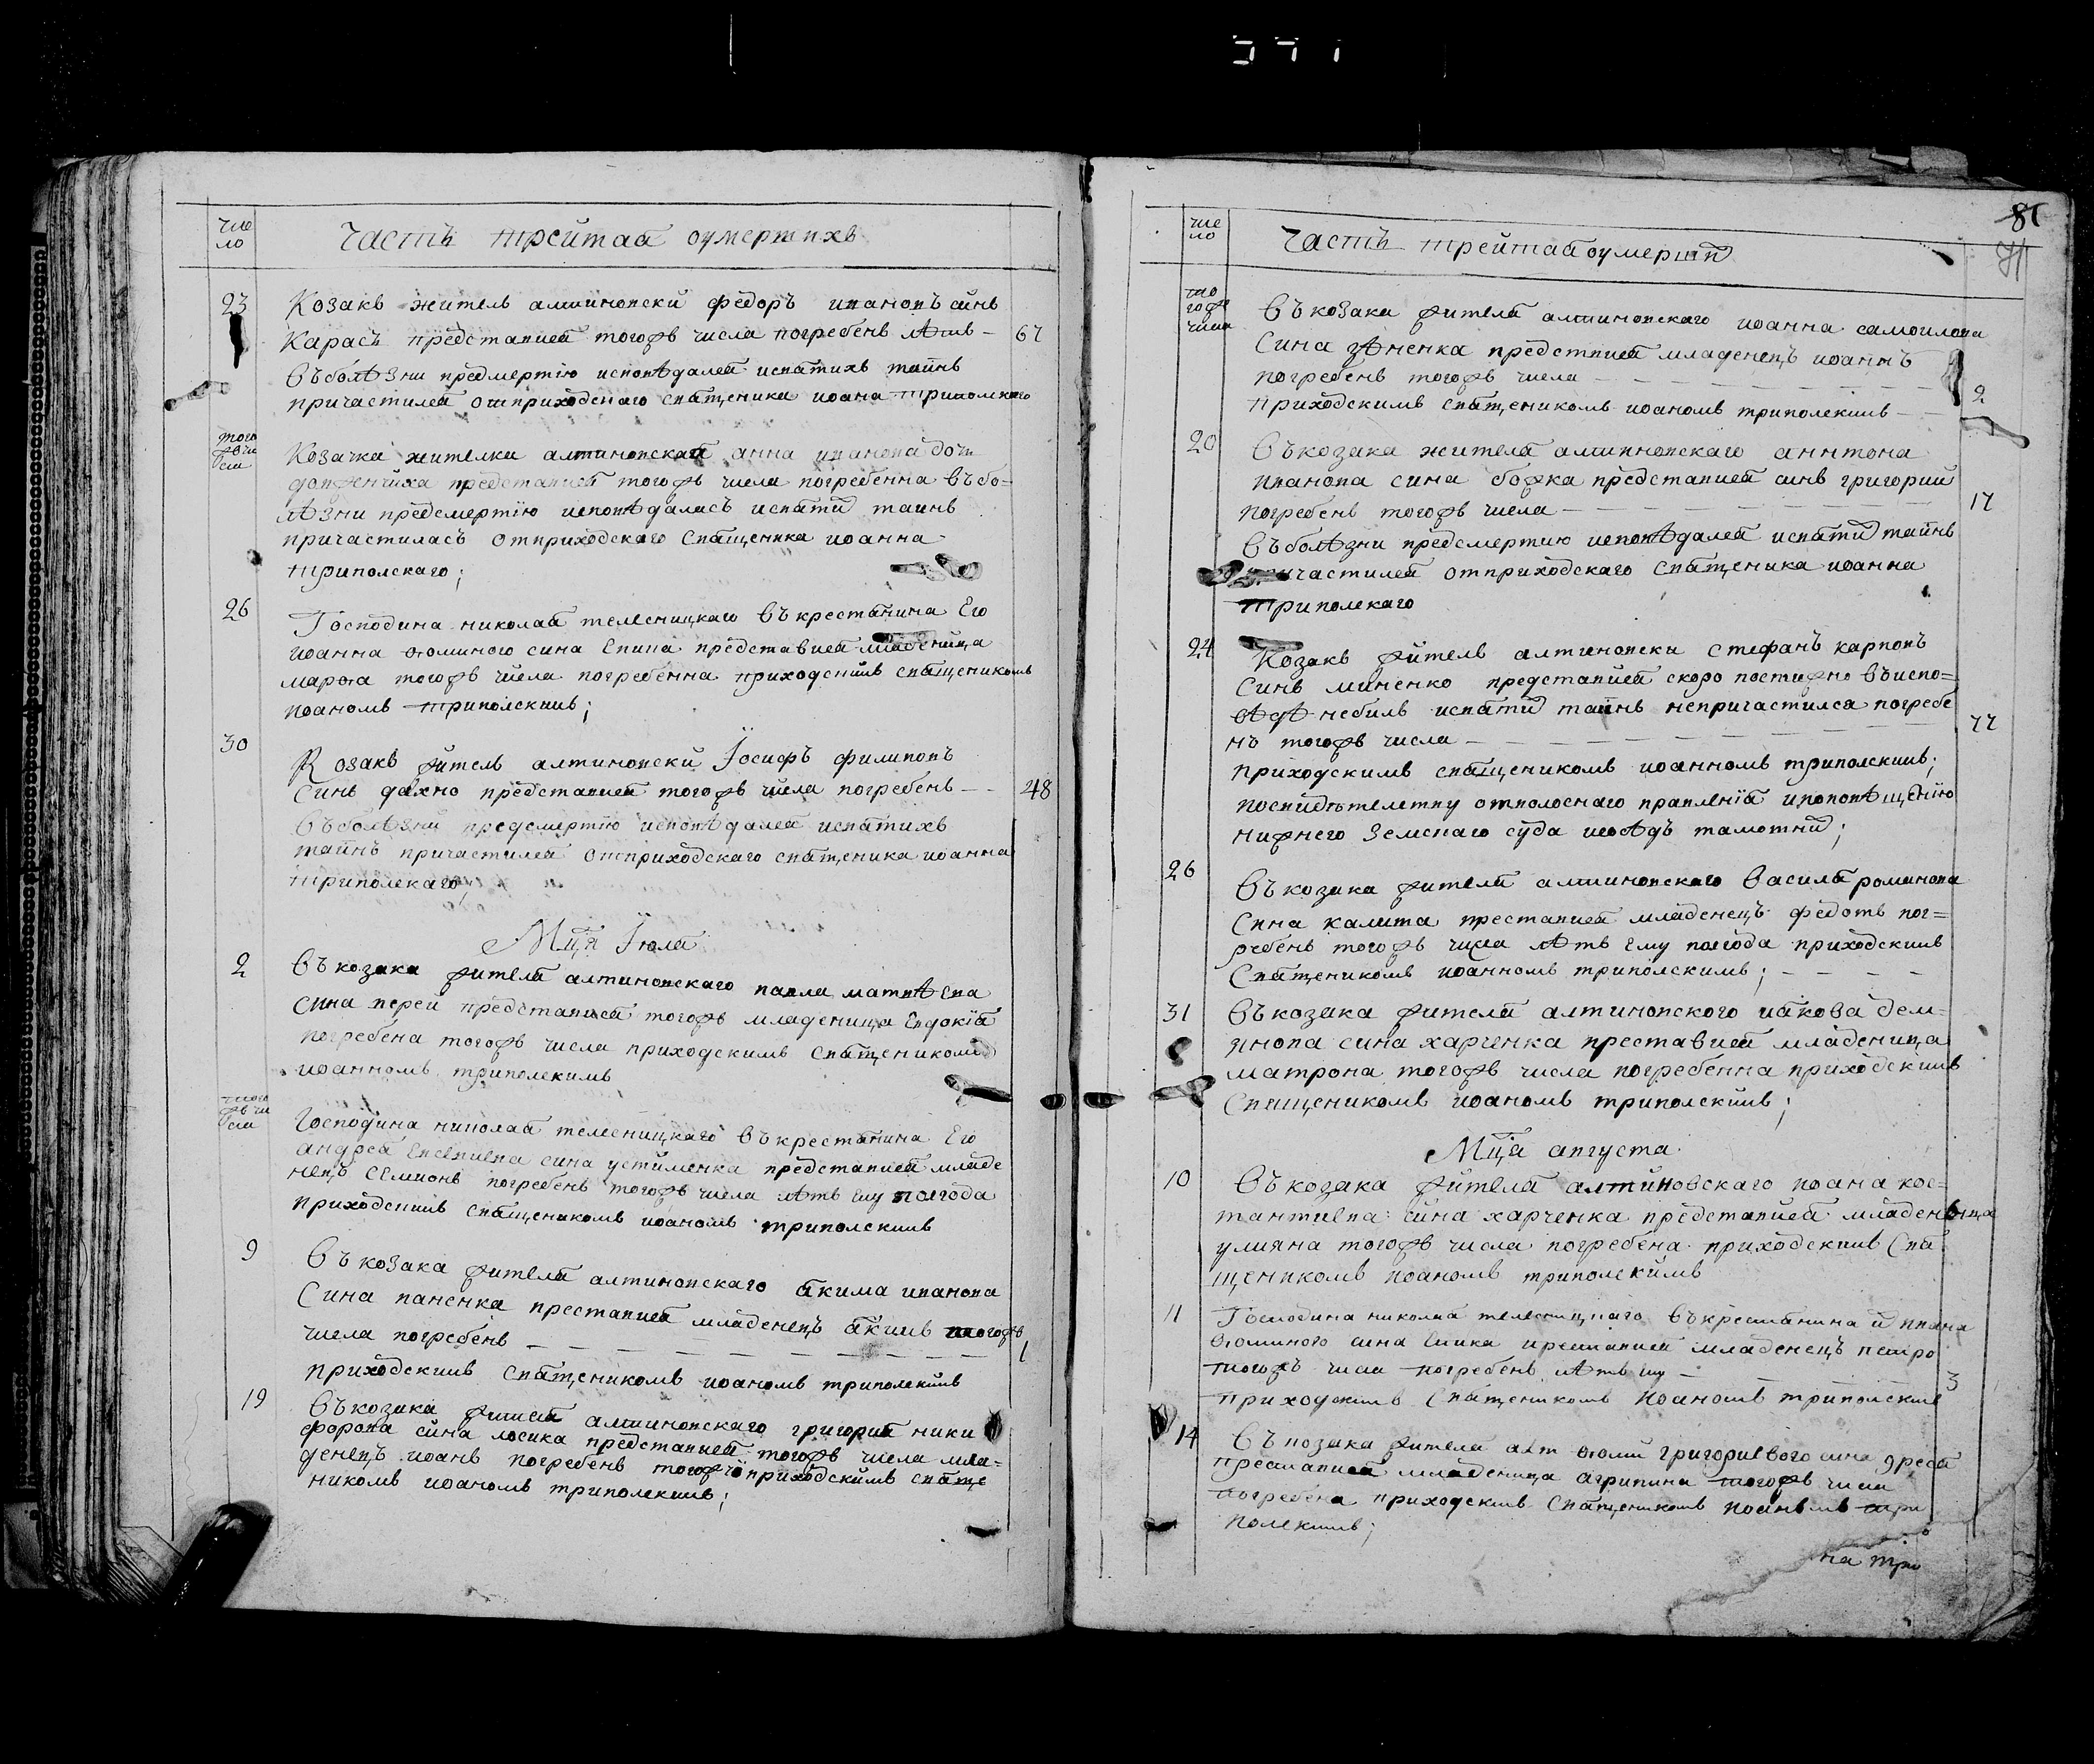 чис
ло
Часть трейтая оумершихъ
23
Козакъ житель алтиновски федоръ ивановъ синъ
Карась представися тогожъ числа погребенъ лѣтъ — 67
Въ болѣзни предсмертію исповѣдался исвятихъ таинъ
причастился отприходскаго священика иоана триполского
того
жъ чи
сла
Козачка жителка алтиновская анна иванова дочь
представися тогожъ числа погребенна въ бо=
лѣзни предсмертію исповѣдалась исвятихъ таинъ
причастилась отприходскаго священика иоанна
триполскаго;
26
Господина николая телесницкаго въ крестянина Его
иоанна ѳоминого сина Епика представися младеница
марѳа тогожъ числа погребенна приходскимъ священикомъ
иоаномъ триполскимъ;
30
Козакъ житель алтиновски Іосифъ филиповъ
Синъ дахно представися тогожъ числа погребенъ — — 48
Въ болѣзни предсмертію исповѣдался исвятихъ
таинъ причастился отприходскаго священика иоанна
триполскаго;
Мця Іюля
2
Въ козака жителя алтиновскаго павла матвѣева
сина перея представися тогожъ младеница Евдокія
погребена тогожъ числа приходскимъ священикомъ
иоанномъ триполскимъ
того
жъ чи
сла
Господина николая телесницкаго въ крестянина Его
андрея Евсевиева сина устименка представися младе
нецъ семионъ погребенъ тогожъ числа лѣтъ Ему полгода
приходскимъ священикомъ иоаномъ триполскимъ
9
Въ козака жителя алтиновскаго акима иванова
Сина паненка преставися младенецъ акимъ тогожъ
числа погребенъ — — — — — — 1
приходскимъ священикомъ иоаномъ триполскимъ
19
Въ козака жителя алтиновскаго григория ники
форова сина лосика представися тогожъ числа мла=
денецъ иоанъ погребенъ тогожъ приходскимъ свяще
никомъ иоаномъ триполскимъ;
81
чис
ло
Часть трейтая оумерших
то
гожъ
числа
Въ козака жителя алтиновскаго иоанна самоилова
Сина зѣненка представися младенецъ иоаннъ
погребенъ тогожъ числа — — — — — — 2
приходскимъ священикомъ иоаномъ триполскимъ —
20
Въ козака жителя алтиновскаго аннтона
иванова сина божка представися синъ григорий
погребенъ тогожъ числа — — — — — — 17
Въ болѣзни предсмертию исповѣдался исвятих таинъ
причастился отприходскаго священика иоанна
триполскаго
24
Козакъ житель алтиновски стефанъ карповъ
Синъ миненко представися скоро постижно въ испо=
вѣдѣ небилъ исвятих таинъ непричастился погребе
нъ тогожъ числа — — — — — — 77
приходскимъ священикомъ иоанномъ триполскимъ;
посвидѣтелству отволоснаго правленія иповопѣщенію
нижнего земскаго суда иобѣдъ тамотних;
26
Въ козака жителя алтиновскаго Василя романова
Сина калита преставися младенецъ федотъ пог=
ребенъ тогожъ числа лѣтъ Ему полгода приходскимъ
Священикомъ иоанномъ триполскимъ; — — — —
31
Въ козака жителя алтиновского иякова дем=
янова сина харченка преставися младеница
матрона тогожъ числа погребенна приходскимъ
Священикомъ иоаномъ триполскимъ;
Мця августа
10
Въ козака жителя алтиновскаго иоана кос=
тантиева сина харченка представися младеница
улияна тогожъ числа погребена приходскимъ Свя
щеникомъ иоаномъ триполскимъ
11
Господина николая телесницкаго въ крестянина ивана
ѳоминого сина Епика преставися младенецъ петро
тогожъ числа погребенъ лѣтъ Ему — — — 3
приходскимъ Священикомъ иоаномъ триполскимъ
14
Въ козака жителя алт ѳоми григориевого сина
преставися младеница агрипина тогожъ числа
погребена приходскимъ Священикомъ иоаномъ три
полскимъ;
на три